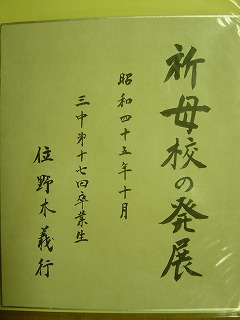 祈母校の発展
昭和四十五年十月
三中第十七回卒業生
位野木義行